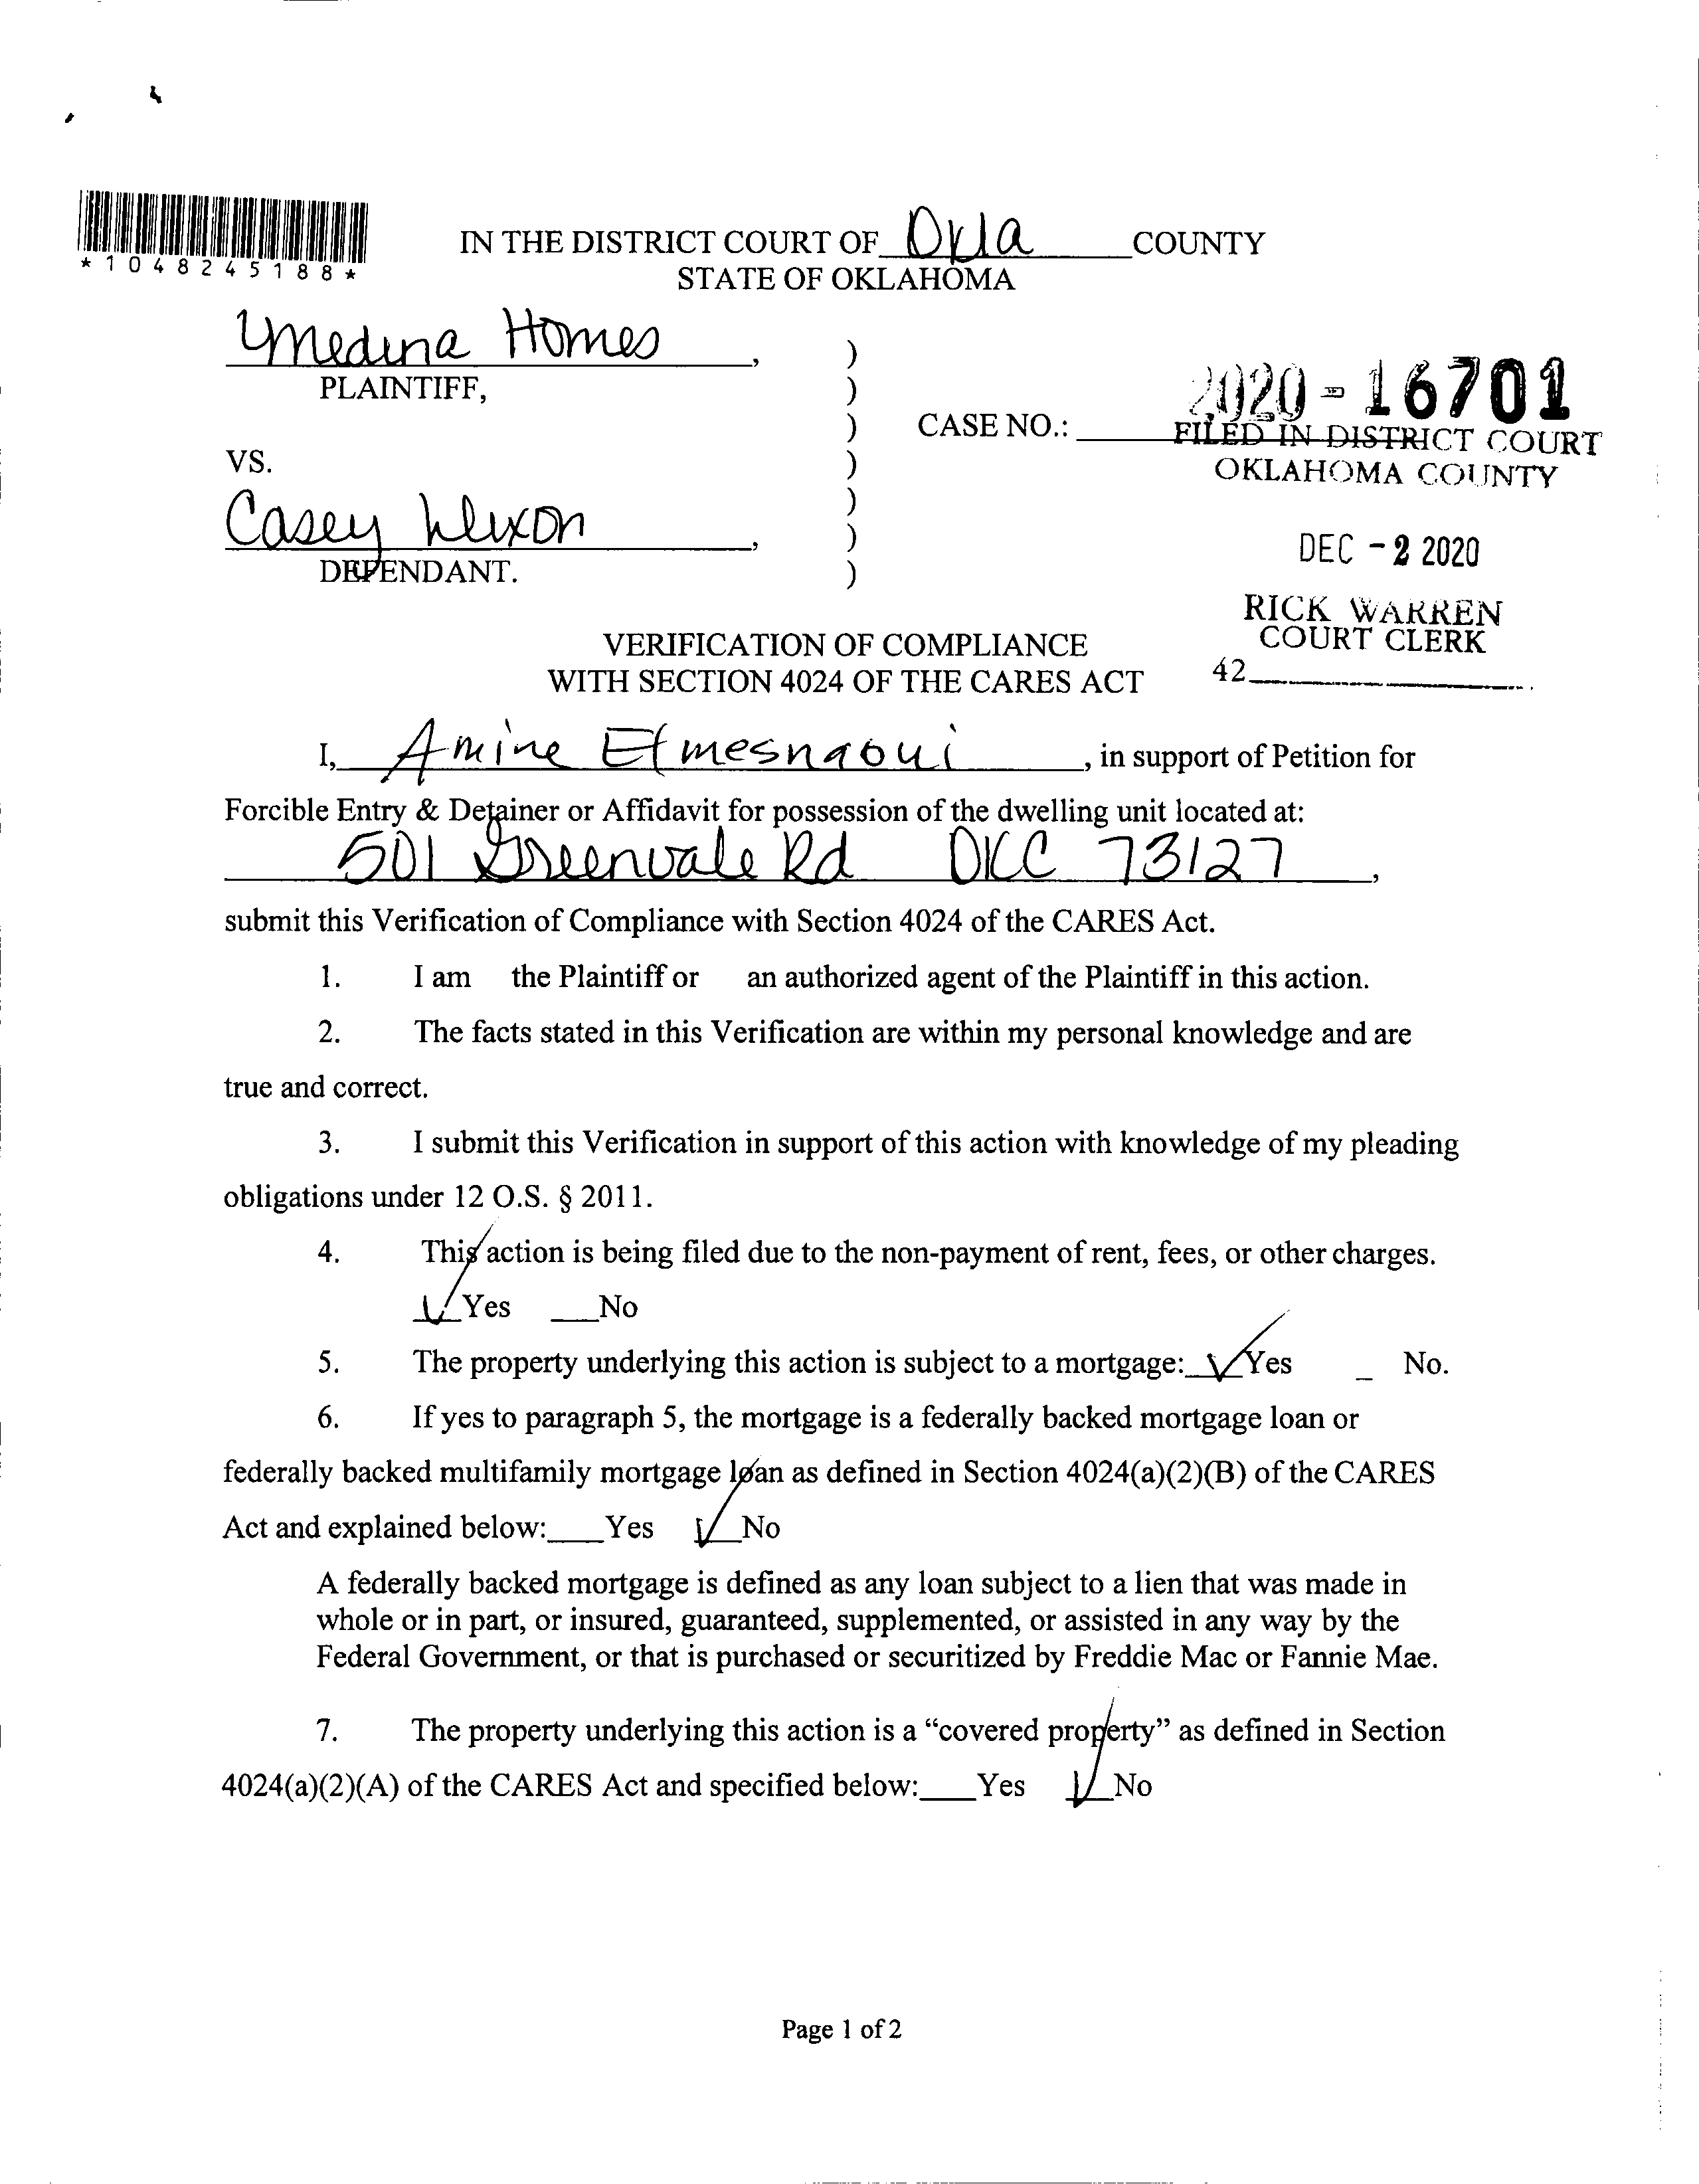 *1048245188*
IN THE DISTRICT COURT OF Okla COUNTY
STATE OF OKLAHOMA
Ymedina Homes,
PLAINTIFF,
2020-16701
CASE NO.:
FILED IN DISTRICT COURT
OKLAHOMA COUNTY
VS.
Casey,
DEFENDANT.
DEC -2 2020
RICK WARREN
COURT CLERK
42
VERIFICATION OF COMPLIANCE
WITH SECTION 4024 OF THE CARES ACT
I, Amine Elmesnaoui, in support of Petition for
Forcible Entry & Detainer or Affidavit for possession of the dwelling unit located at:
501 Greenvale Rd OKC 73127,
submit this Verification of Compliance with Section 4024 of the CARES Act.
1. I am the Plaintiff or an authorized agent of the Plaintiff in this action.
2. The facts stated in this Verification are within my personal knowledge and are
true and correct.
3. I submit this Verification in support of this action with knowledge of my pleading
obligations under 12 O.S. § 2011.
4. This action is being filed due to the non-payment of rent, fees, or other charges.
✓ Yes ___No
5. The property underlying this action is subject to a mortgage: ✓ Yes _ No.
6. If yes to paragraph 5, the mortgage is a federally backed mortgage loan or
federally backed multifamily mortgage loan as defined in Section 4024(a)(2)(B) of the CARES
Act and explained below:___Yes ✓ No
A federally backed mortgage is defined as any loan subject to a lien that was made in
whole or in part, or insured, guaranteed, supplemented, or assisted in any way by the
Federal Government, or that is purchased or securitized by Freddie Mac or Fannie Mae.
7. The property underlying this action is a “covered property” as defined in Section
4024(a)(2)(A) of the CARES Act and specified below:___Yes ✓ No
Page 1 of 2